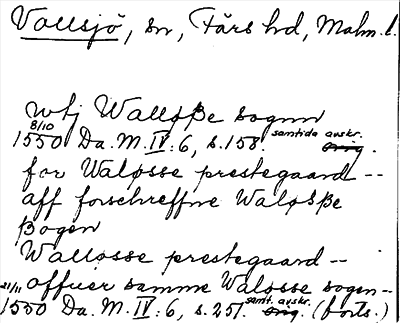 Vallsjö, sn, Färs hd, Malm. l.
utj Walløsze sognn
8/10 1550 Da. M. IV:6, s. 158. samtida avskr. orig.
for Waløsse prestegaard --
aff forschreffne Waløssze
sogen
Wallosse prestegaard --
offuer samme Waløsse sogen --
21/11 1550 Da. M. IV:6, s. 251. samt. avskr. orig. (forts.)